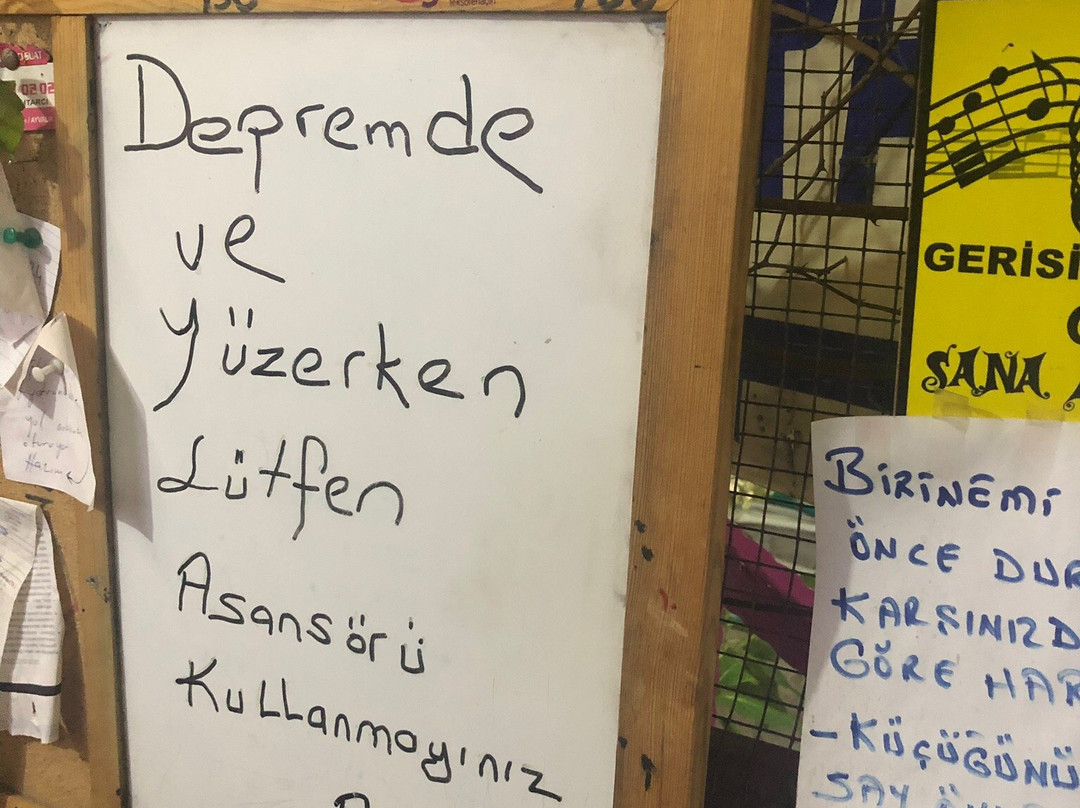 Depremde
ve
Yüzerken
Lütfen
Asansörü
Kullanmayınız
GERİSİ
SANA
BİRİNEMİ
ÖNCE DUR
KARŞINIZD
GÖRE HAR
-KÜÇÜĞÜNÜ
SAY